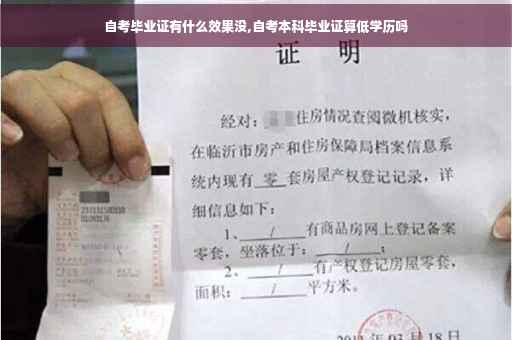 自考毕业证有什么效果没,自考本科毕业证算低学历吗
证 明
经对：住房情况查阅微机核实，
在临沂市房产和住房保障局档案信息系
统内现有 零 套房屋产权登记记录，详
细信息如下：
1、 / 有商品房网上登记备案
零套，坐落位于： / ；
2、 / 有产权登记房屋零套，
面积： / 平方米。
03月18日